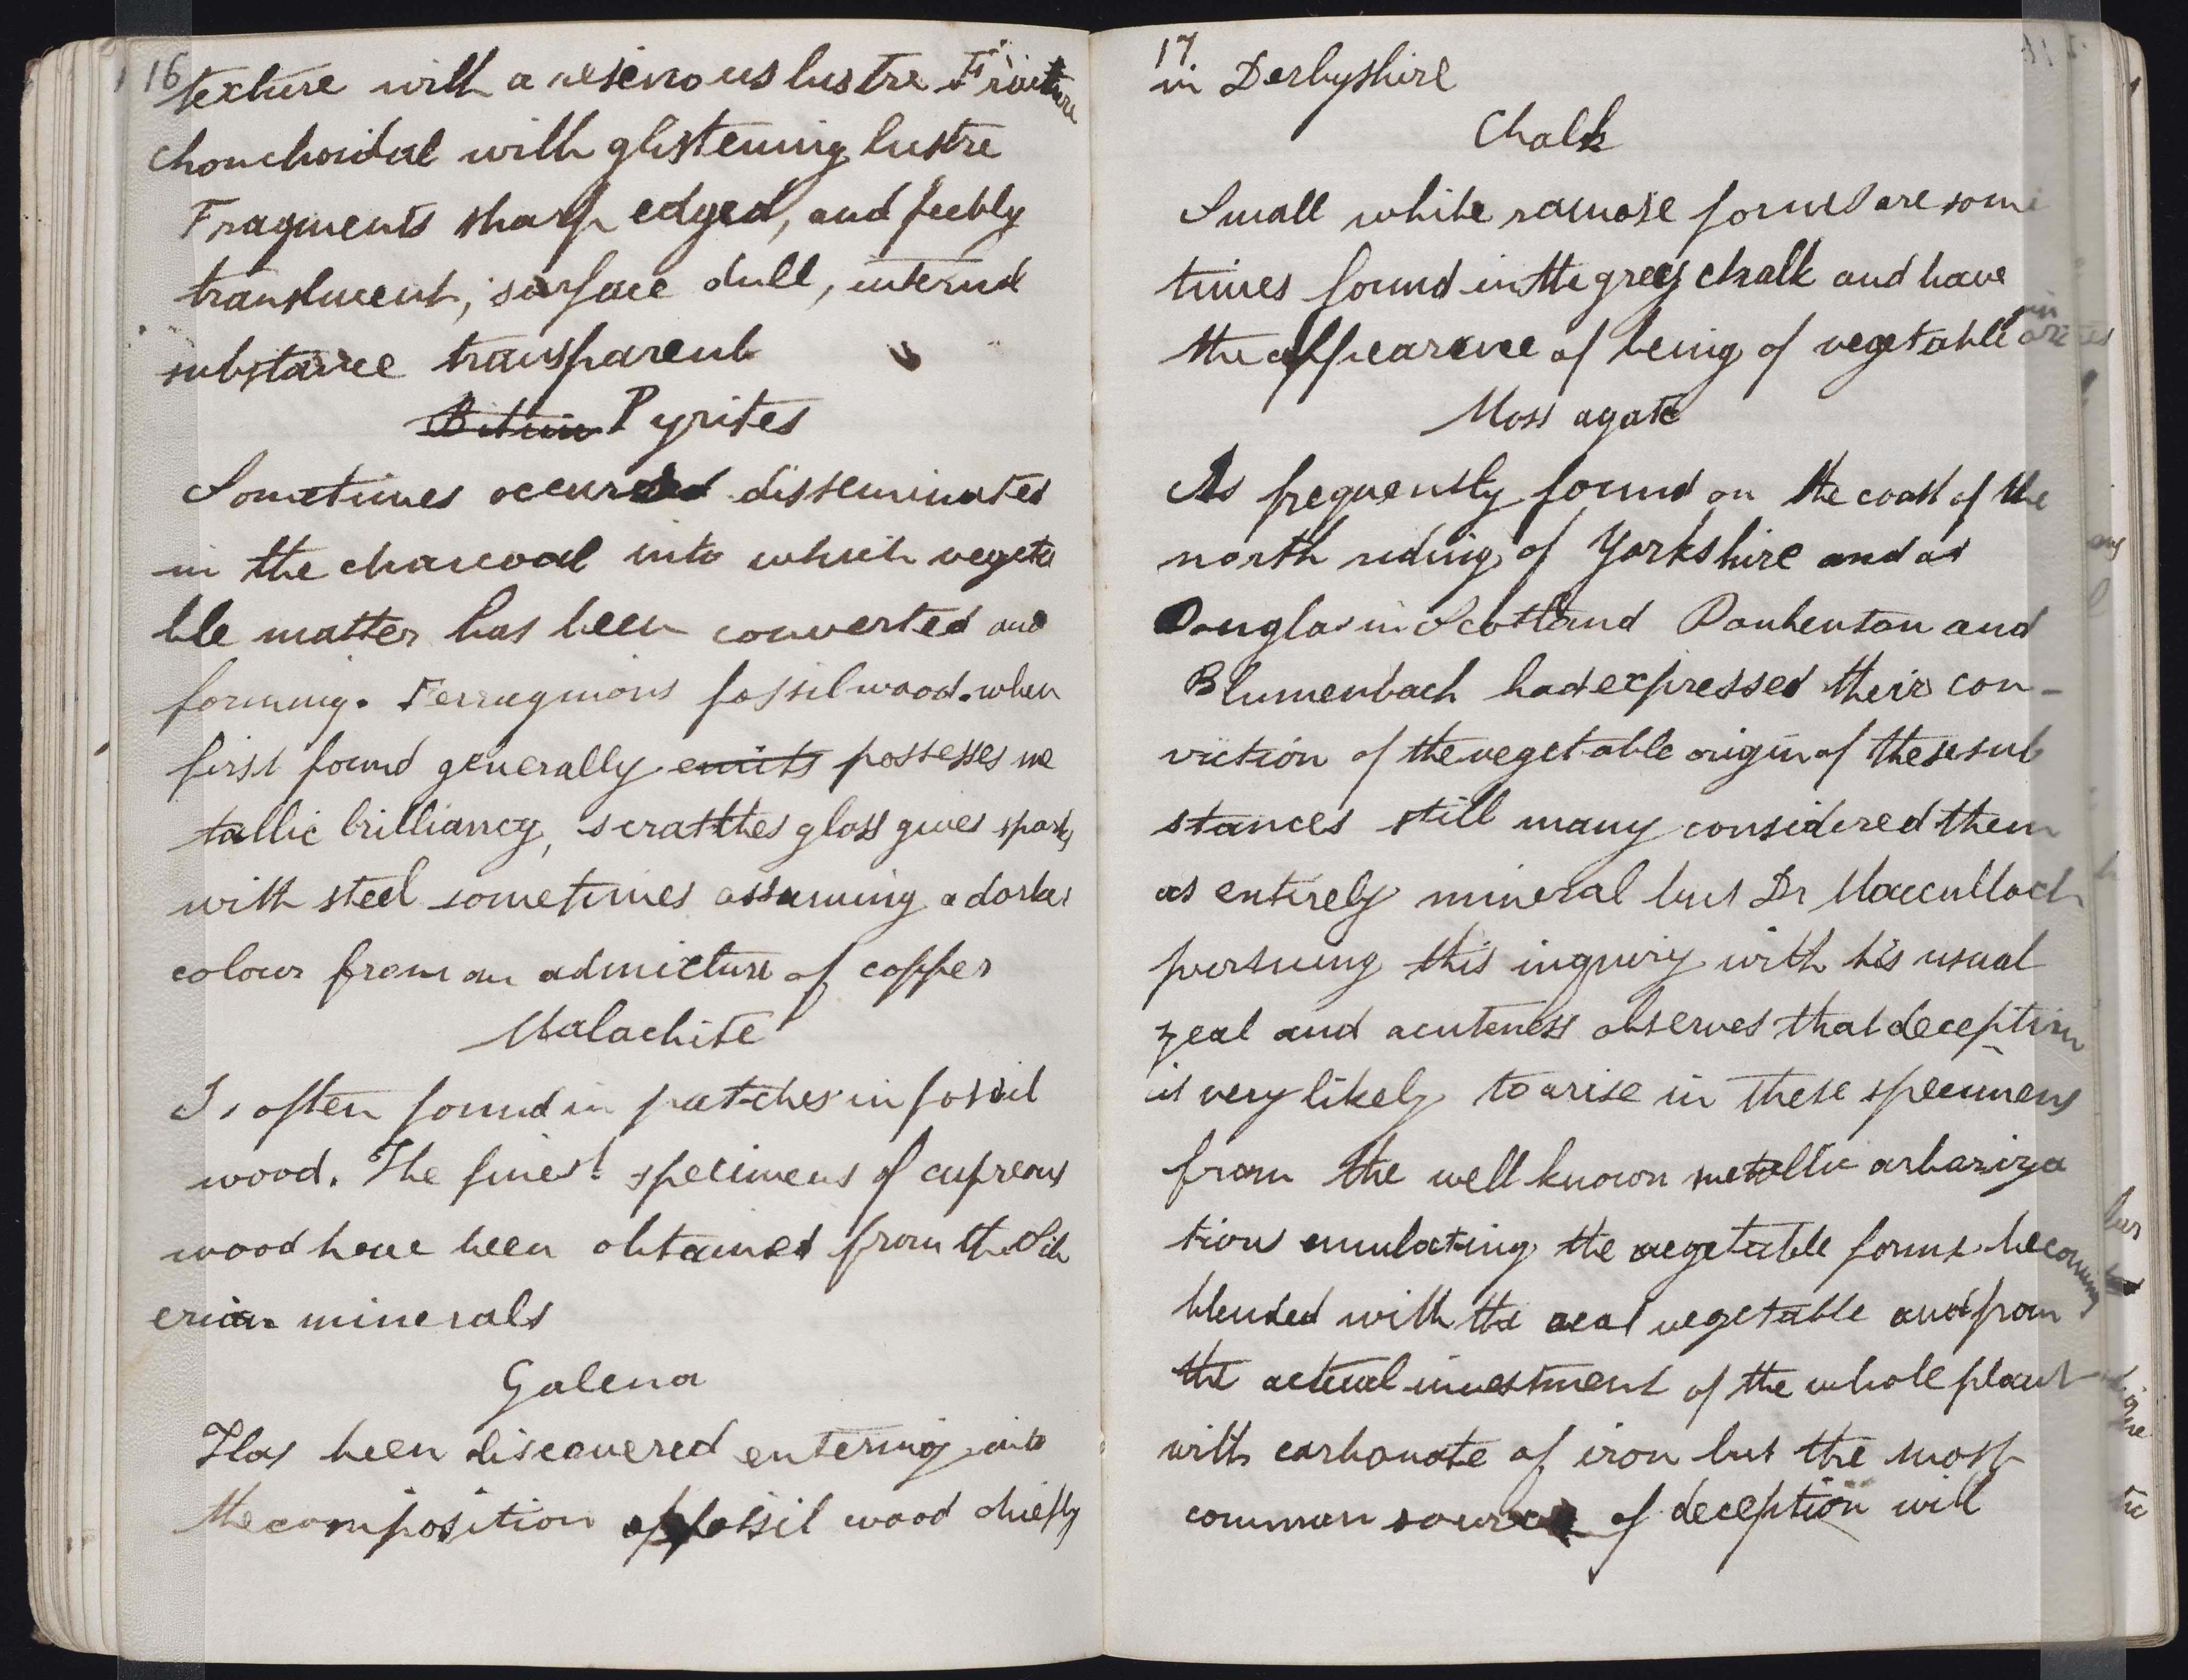 16
texture with a resinous lustre Fracture
Chonchoidal with glistening lustre
Fragments sharp edged, and feebly
translucent, surface dull, internal
substance transparent
Bitum Pyrites
Sometimes occurred disseminated
in the charcoal into which vegeta
ble matter has been converted and
forming. Ferruginous fossil wood. when
first found generally emits possesses me
tallic brilliancy, scratthes glass gives sparks
with steel sometimes assuming a darker
colour from an admixture of copper
Malachite
Is often found in patches in fossil
wood. The finest specimens of cupreous
wood have been obtained from the Sib
erian minerals
Galena
Has been discovered entering into
the composition of fossil wood chiefly
17
in Derbyshire
Chalk
Small white ramose forms are some
times found in the grey chalk and have
the appearance of being of vegetable
Moss agate
As frequently found on the coast of the
north riding of Yorkshire and at
Dunglas in Scotland Daubenton and
Blumenbach had expressed their con-
viction of the vegetable origin of these sub
stances still many considered them
as entirely mineral but Dr Macculloch
pursuing this inquiry with his usual
zeal and acuteness observes that deception
is very likely to arise in these specimens
from the well known metallic arboriza
tion emulating the vegetable forms becoming
blended with the real vegetable and from
the actual investment of the whole plant
with carbonate of iron but the most
common source of deception will